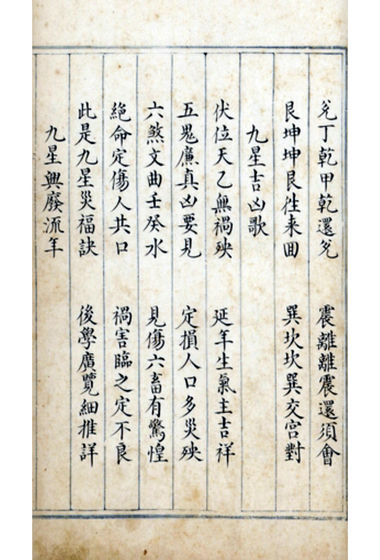 兊丁乾甲乾還兊　震離離震還須會
艮坤坤艮徃来囬　巽坎坎巽交宮對
九星吉凶歌
伏位天乙無禍殃　延年生氣主吉祥
五鬼廉真凶要見　定損人口多災殃
六煞文曲壬癸水　見傷六畜有驚惶
絶命定傷人共口　禍害臨之定不良
此是九星災福訣　後學廣覽細推詳
九星興廢流年